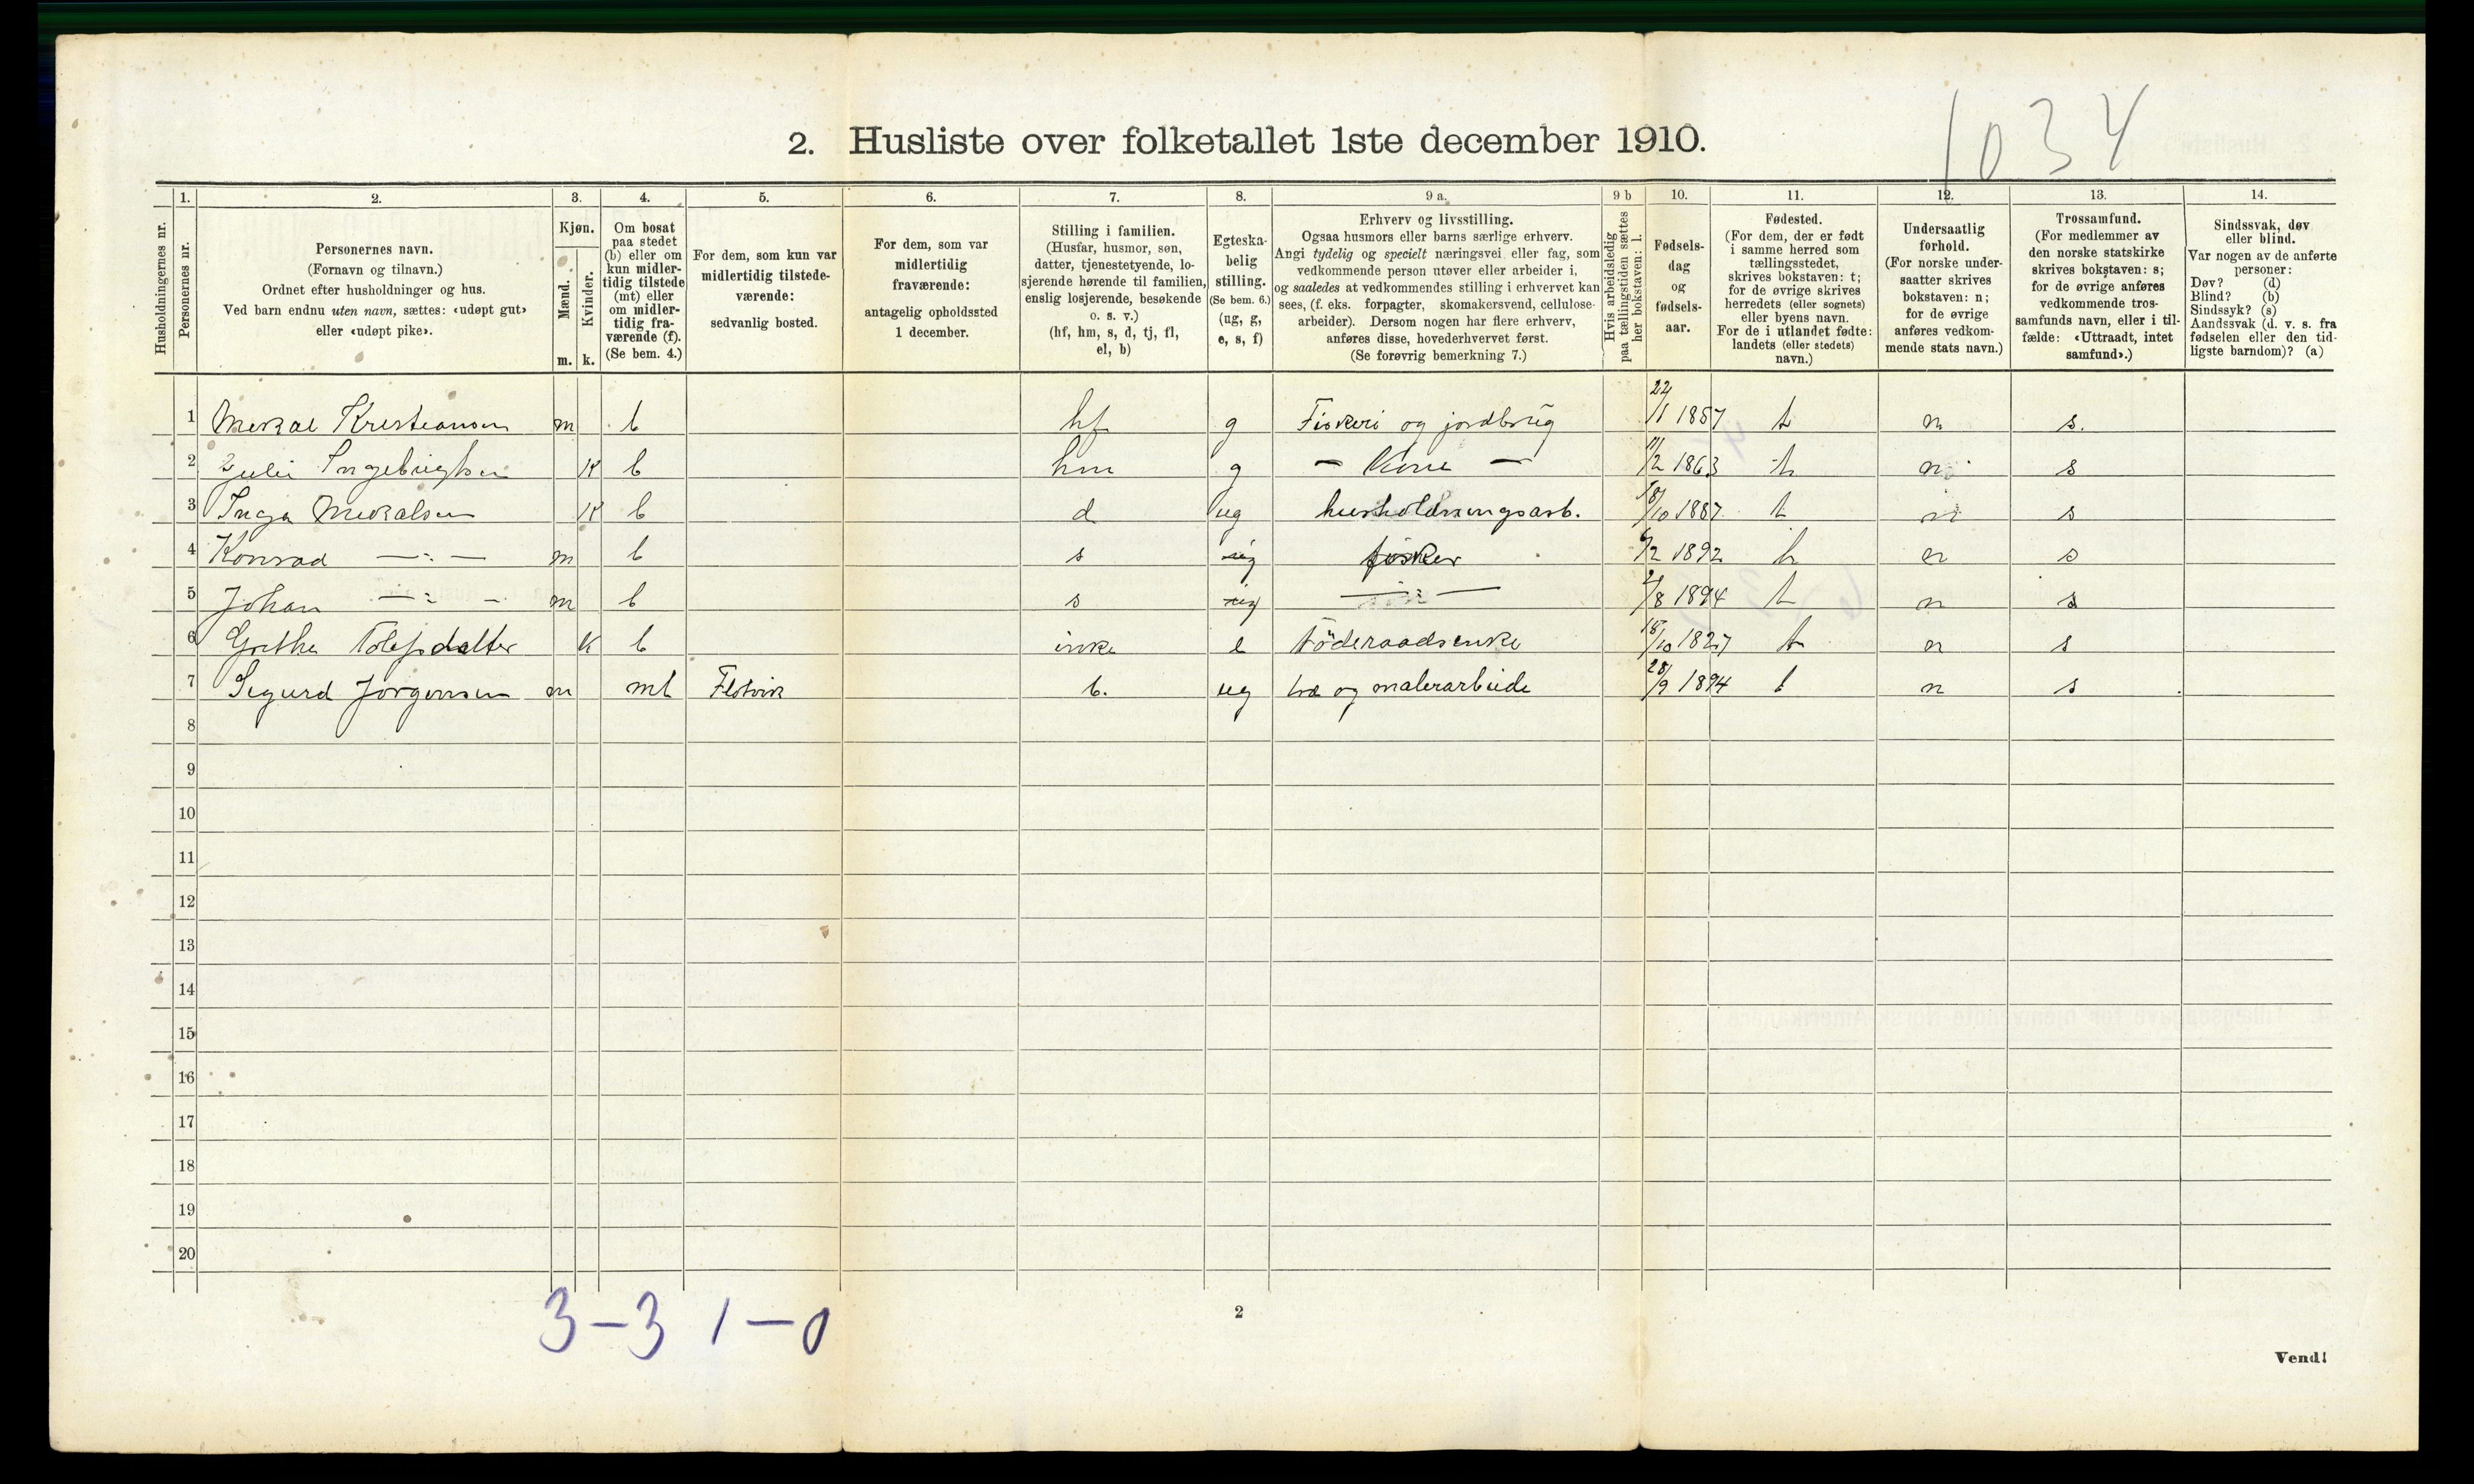 1034
2. Husliste over folketallet 1ste december 1910.
1. 2. 3. 4. 5. 6. 7. 8. 9 a. 9 b 10. 11. 12. 13. 14.
Husholdningernes nr.
Personernes nr.
Personernes navn.
(Fornavn og tilnavn.)
Ordnet efter husholdninger og hus.
Ved barn endnu uten navn, sættes: «udøpt gut»
eller «udøpt pike».
Kjøn.
Mænd.
Kvinder.
m. k.
Om bosat
paa stedet
(b) eller om
kun midler-
tidig tilstede
(mt) eller
om midler-
tidig fra-
værende (f).
(Se bem. 4.)
For dem, som kun var
midlertidig tilstede-
værende:
sedvanlig bosted.
For dem, som var
midlertidig
fraværende:
antagelig opholdssted
1 december.
Stilling i familien.
(Husfar, husmor, søn,
datter, tjenestetyende, lo-
sjerende hørende til familien,
enslig losjerende, besøkende
o. s. v.)
(hf, hm, s, d, tj, fl,
el, b)
Egteska-
belig
stilling.
(Se bem. 6.)
(ug, g,
e, s, f)
Erhverv og livsstilling.
Ogsaa husmors eller barns særlige erhverv.
Angi tydelig og specielt næringsvei eller fag, som
vedkommende person utøver eller arbeider i,
og saaledes at vedkommendes stilling i erhvervet kan
sees, (f. eks. forpagter, skomakersvend, cellulose-
arbeider). Dersom nogen har flere erhverv,
anføres disse, hovederhvervet først.
(Se forøvrig bemerkning 7.)
Hvis arbeidsledig
paa tællingstiden sættes
her bokstaven: l.
Fødsels-
dag
og
fødsels-
aar.
Fødested.
(For dem, der er født
i samme herred som
tællingsstedet,
skrives bokstaven: t;
for de øvrige skrives
herredets (eller sognets)
eller byens navn.
For de i utlandet fødte:
landets (eller stedets)
navn.)
Undersaatlig
forhold.
(For norske under-
saatter skrives
bokstaven: n;
for de øvrige
anføres vedkom-
mende stats navn.)
Trossamfund.
(For medlemmer av
den norske statskirke
skrives bokstaven: s;
for de øvrige anføres
vedkommende tros-
samfunds navn, eller i til-
fælde: «Uttraadt, intet
samfund».)
Sindssvak, døv
eller blind.
Var nogen av de anførte
personer:
Døv? (d)
Blind? (b)
Sindssyk? (s)
Aandssvak (d. v. s. fra
fødselen eller den tid-
ligste barndom)? (a)
1 Mekal Kristiansen m b hf g Fiskeri og jordbrug 22/11 1857 t n s.
2 Julie Ingebrigtsen K b hm g — Kone — 11/2 1863 t n s
3 Inga Mekalsen K b d ug husholdningsarb. 18/10 1887 t n s
4 Konrad —:— m b s ug fisker 6/2 1892 t n s
5 Johan —:— m b s ug —:— /8 1894 t n s
6 Grethe Tolefsdatter K b e föderaadsenke 18/10 1827 t n s
7 Sigurd Jorgensen m mt Flotvik b. ug træ og malerarbeide 28/9 1894 t n s
8
9
10
11
12
13
14
15
16
17
18
19
20
3–3 1–0
2
Vend!